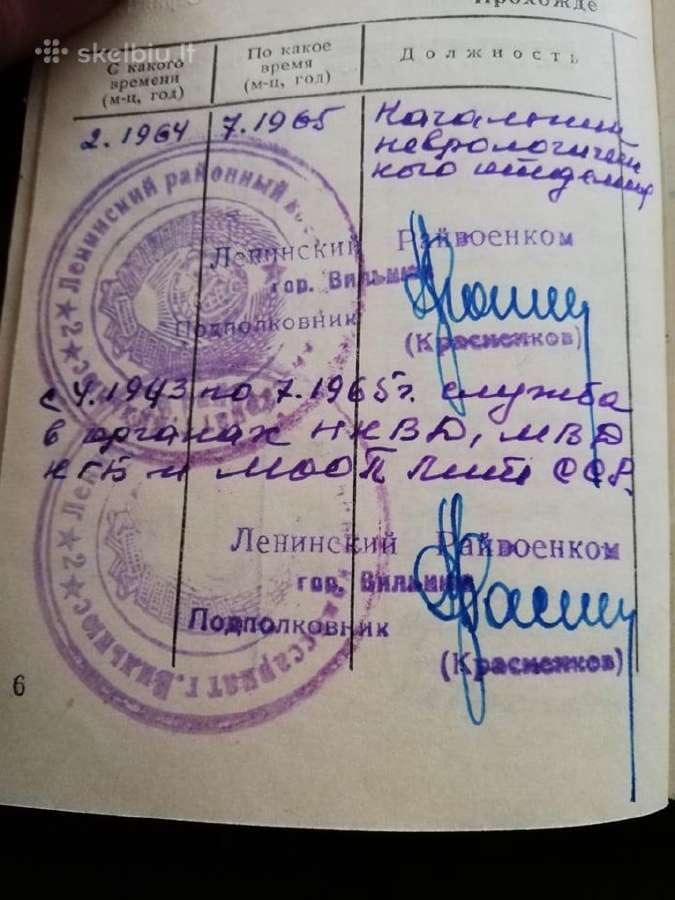 skelbiu.lt
Прохожде
С какого времени (м-ц, год)
По какое время (м-ц, год)
Должность
2.1964 7.1965 Начальник
неврологичес
кого отделения
Ленинский районный
Ленинский Райвоенком
гор. Вильнюс
Подполковник
(Красненков)
с 4.1943 по 7.1965г. служба
в органах НКВД, МВД
КГБ и МООП Лит ССР.
Ленинский Райвоенком
гор. Вильнюс
Подполковник
(Красненков)
г. Вильнюс
6